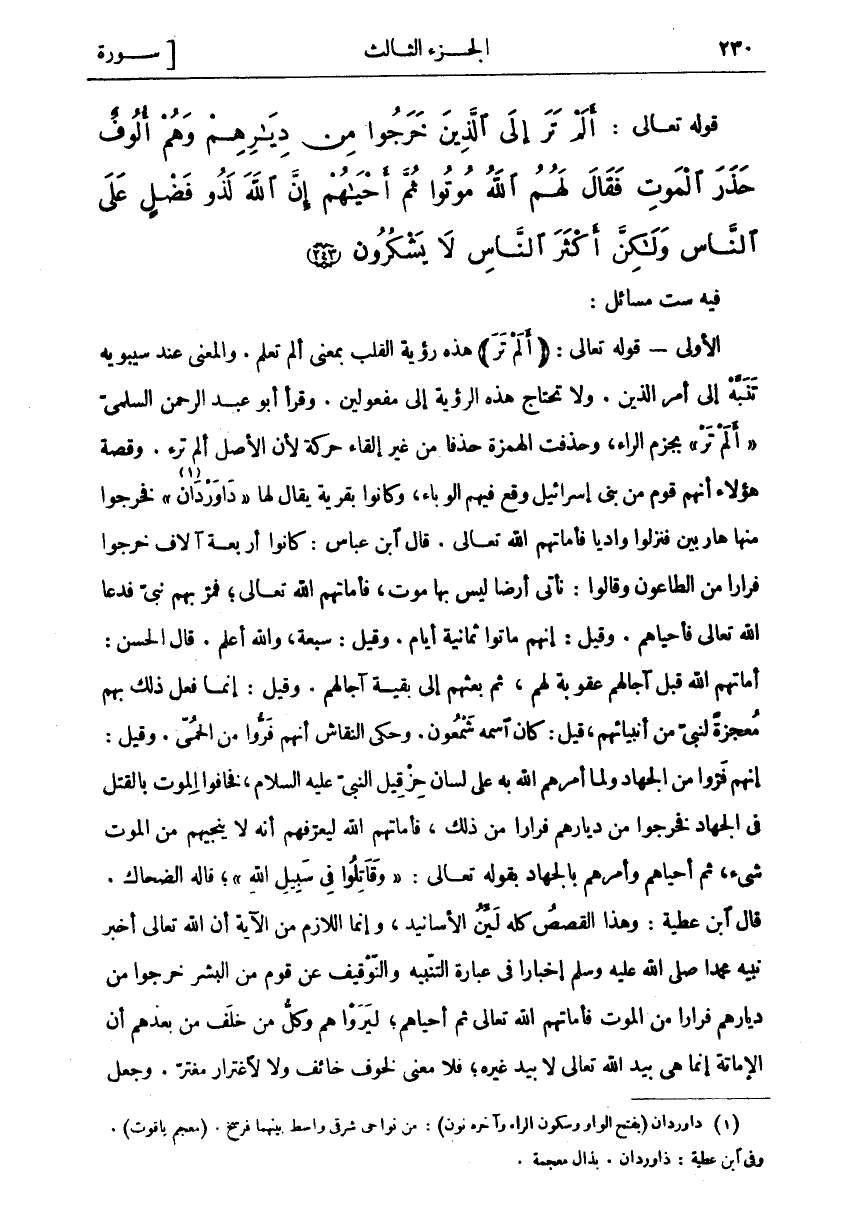 ٢٣٠ الجـزء الثـالث [ ســورة
قوله تعـالى : أَلَمْ تَرَ إِلَى ٱلَّذِينَ خَرَجُوا مِن دِيَـٰرِهِمْ وَهُمْ أُلُوفٌ
حَذَرَ ٱلْمَوْتِ فَقَالَ لَهُمُ ٱللَّهُ مُوتُوا ثُمَّ أَحْيَـٰهُمْ إِنَّ ٱللَّهَ لَذُو فَضْلٍ عَلَى
ٱلنَّاسِ وَلَـٰكِنَّ أَكْثَرَ ٱلنَّاسِ لَا يَشْكُرُونَ ﴿٢٤٣﴾
فيه ست مسائل :
الأولى — قوله تعالى : ﴿ أَلَمْ تَرَ ﴾ هذه رؤية القلب بمعنى ألم تعلم . والمعنى عند سيبويه
تَنَبَّهْ إلى أمر الذين . ولا تحتاج هذه الرؤية إلى مفعولين . وقرأ أبو عبـد الرحمن السلمىّ
« أَلَمْ تَرْ» بجزم الراء، وحذفت الهمزة حذفا من غير إلقاء حركة لأن الأصل ألم ترء . وقصة
هؤلاء أنهم قوم من بنى إسرائيل وقع فيهم الوباء، وكانوا بقرية يقال لها « دَاوَرْدَان (١) » فخرجوا
منها هاربين فنزلوا واديا فأماتهم الله تعـالى . قال ٱبن عباس : كانوا أربعـة آلاف خرجوا
فرارا من الطاعون وقالوا : نأتى أرضا ليس بها موت، فأماتهم الله تعـالى؛ فمرّ بهم نبىّ فدعا
الله تعالى فأحياهم . وقيل : إنهم ماتوا ثمانية أيام . وقيل : سبعة، والله أعلم . قال الحسن :
أماتهم الله قبل آجالهم عقوبة لهم ، ثم بعثهم إلى بقيـة آجالهم . وقيل : إنمـا فعل ذلك بهم
مُعجزةً لنبىّ من أنبيائهم، قيل : كان ٱسمه شَمْعُون . وحكى النقاش أنهم فَرُّوا من الحُمَّى . وقيل :
إنهم فَرّوا من الجهاد ولما أمرهم الله به على لسان حِزْقِيل النبىّ عليه السلام، فخافوا الموت بالقتل
فى الجهاد فخرجوا من ديارهم فرارا من ذلك ، فأماتهم الله ليعرّفهم أنه لا ينجيهم من الموت
شىء، ثم أحياهم وأمرهم بالجهاد بقوله تعـالى : « وَقَاتِلُوا فِى سَبِيلِ اللهِ »؛ قاله الضحاك .
قال ٱبن عطية : وهذا القصصُ كله لَيِّنُ الأسانيد ، وإنما اللازم من الآية أن الله تعالى أخبر
نبيه محمدا صلى الله عليه وسلم إخبارا فى عبارة التنبيه والتَّوْقيف عن قوم من البشر خرجوا من
ديارهم فرارا من الموت فأماتهم الله تعالى ثم أحياهم؛ ليَرَوْا هم وكلُّ من خلَف من بعدهم أن
الإماتة إنما هى بيد الله تعالى لا بيد غيره؛ فلا معنى لخوف خائف ولا لٱغترار مغترّ . وجعل
(١) داوردان (بفتح الواو وسكون الراء وآخره نون) : من نواحى شرقى واسط بينهما فرسخ . (معجم ياقوت) .
وفى ٱبن عطية : ذاوردان . بذال معجمة .